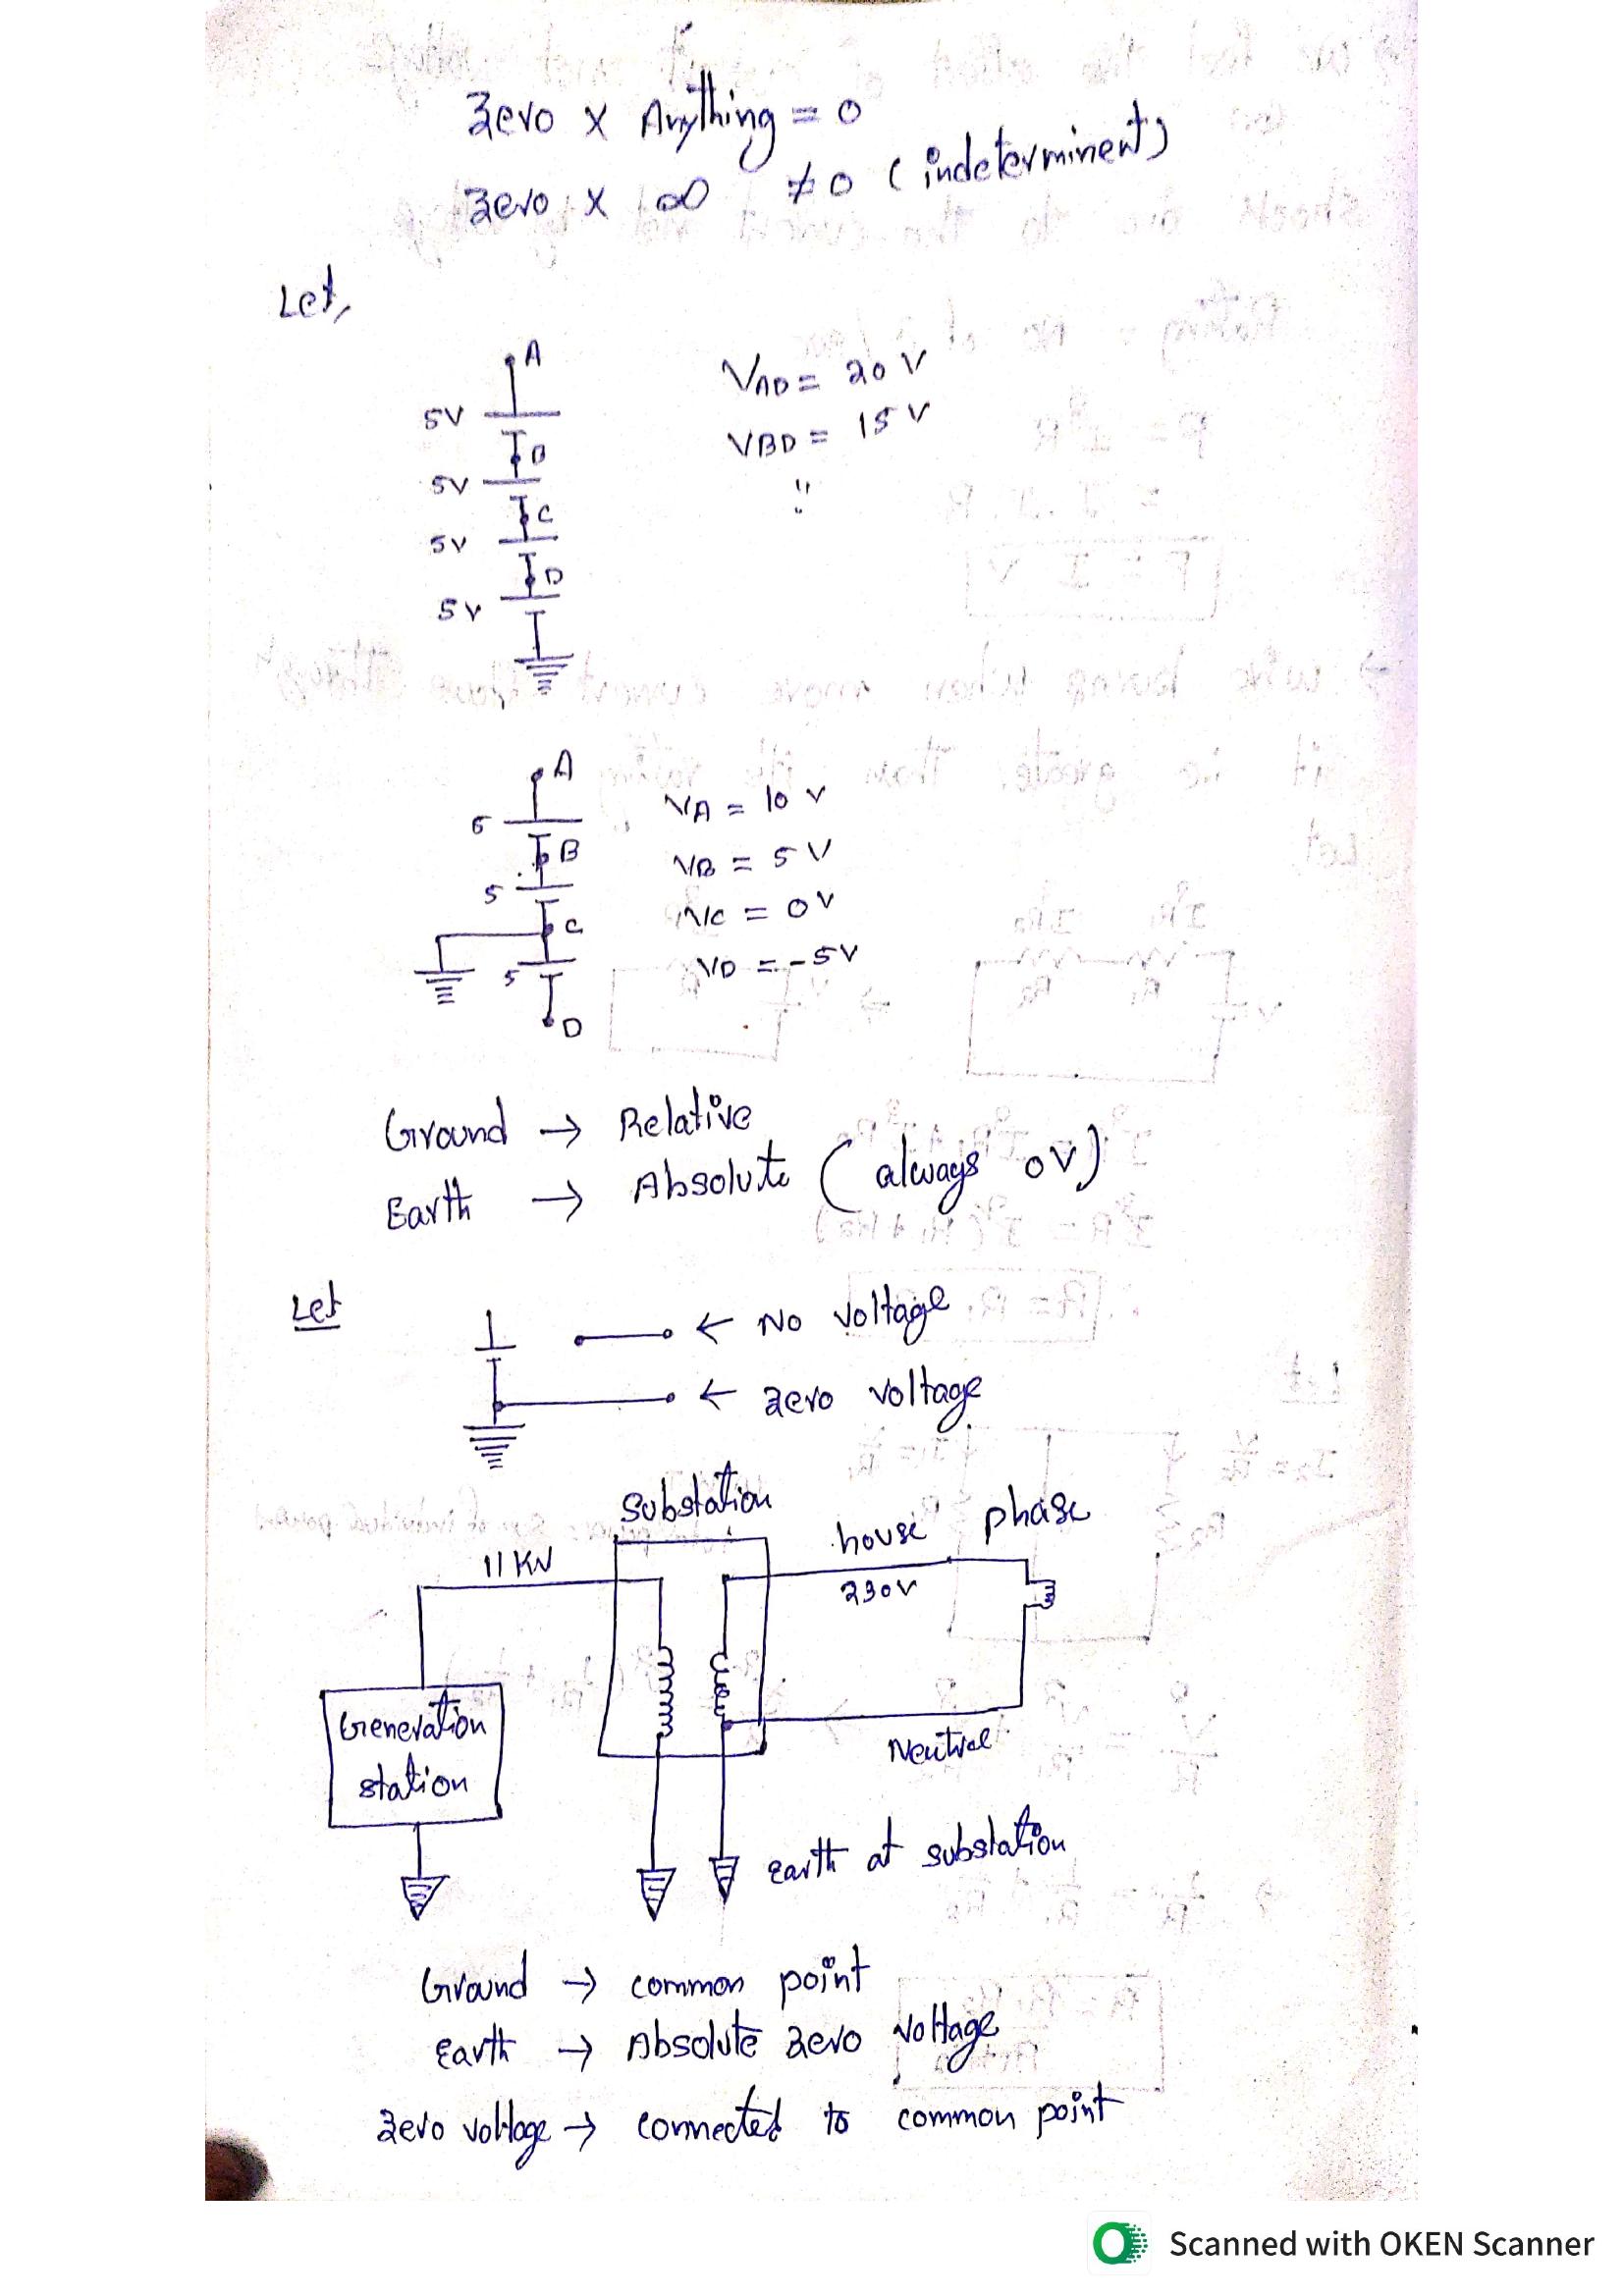 Zero x Anything = 0
Zero x ∞ ≠ 0 (indeterminent)
Let,
A
5V
B
5V
C
5V
D
5V
VAD = 20 V
VBD = 15 V
A
5
B
5
C
5
D
VA = 10 V
VB = 5 V
VC = 0 V
VD = -5V
Ground → Relative
Earth → Absolute (always 0V)
Let
← No voltage
← zero voltage
Substation
house phase
11 KV
230V
Generation
station
Neutral
Earth at substation
Ground → common point
Earth → Absolute zero voltage
zero voltage → connected to common point
Scanned with OKEN Scanner